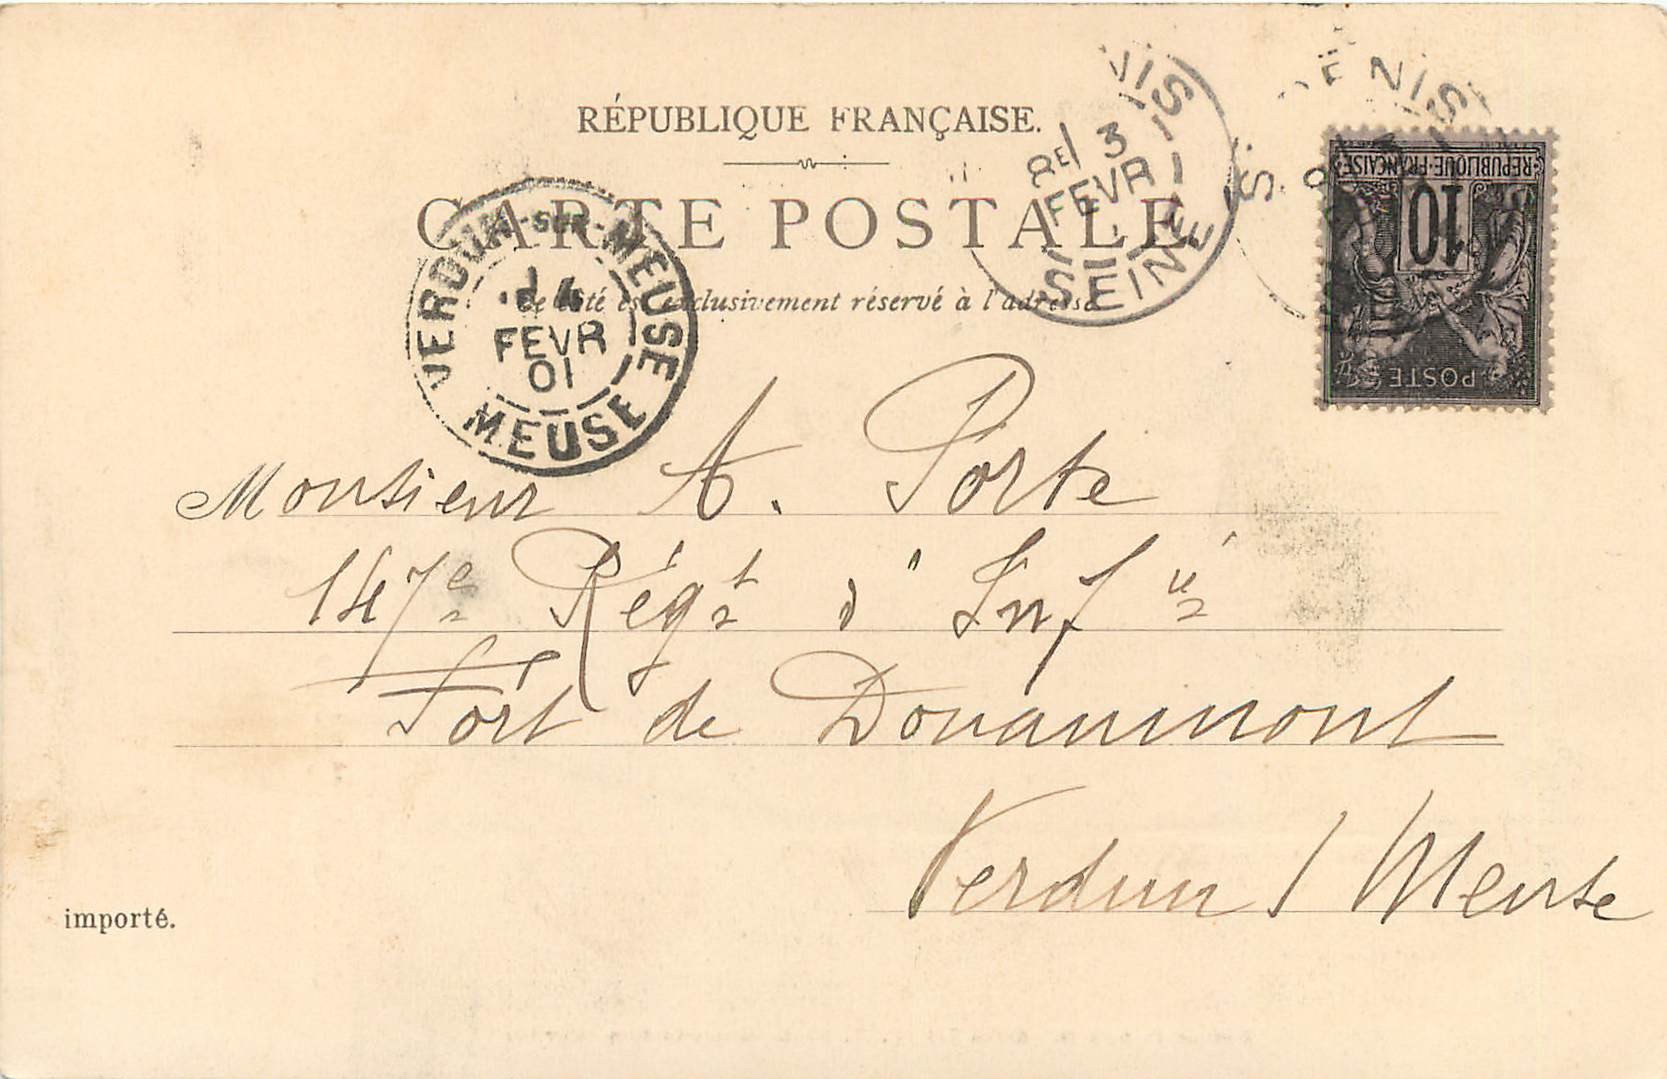 RÉPUBLIQUE FRANÇAISE.
CARTE POSTALE
Ce côté est exclusivement réservé à l'adresse
VERDUN-SUR-MEUSE
4
FEVR
01
MEUSE
NIS
8E 3
FEVR
SEINE
S. DENIS
REPUBLIQUE FRANÇAISE
10
POSTE
Monsieur A. Porte
147e Régt d'Infie
Fort de Douaumont
Verdun / Meuse
importé.